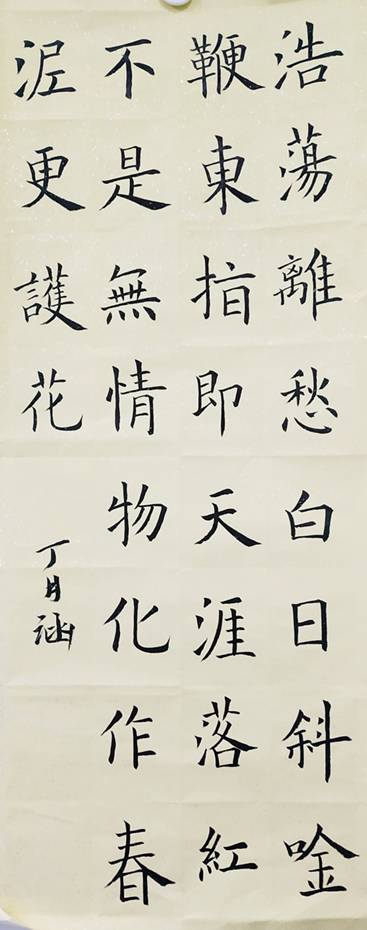 浩蕩離愁白日斜唫
鞭東指即天涯落紅
不是無情物化作春
泥更護花
丁月涵